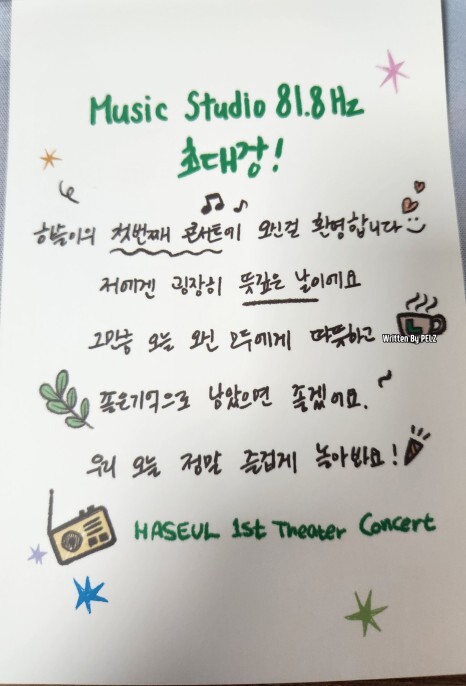 Music Studio 81.8 Hz
초대장!
하슬이의 첫번째 콘서트에 오신걸 환영합니다
저에겐 굉장히 뜻깊은 날이에요
그만큼 오늘 와신 모두에게 따뜻하고
Written By PELZ
좋은기억으로 남았으면 좋겠어요.
우리 오늘 정말 즐겁게 놀아봐요!
HASEUL 1st Theater Concert